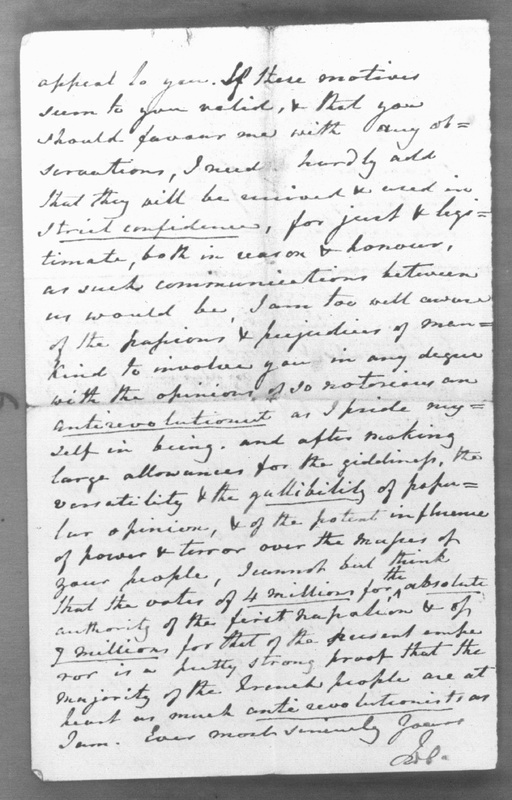 appeal to you. If these motives
seem to you valid, & that you
should favour me with any ob=
servations, I need hardly add
that they will be received & used in
strict confidence, for just & legi=
timate, both in reason & honour,
as such communications between
us would be, I am too well aware
of the passions & prejudices of man=
kind to involve you in any degree
with the opinions of so notorious an
antirevolutionist as I pride my=
self in being. and after making
large allowances for the giddiness, the
versatility & the gullibility of popu=
lar opinion, & of the potent influence
of power & terror over the masses of
your people, I cannot but think
that the votes of 4 millions for the absolute
authority of the first Napoleon & of
7 millions for that of the present empe
ror is a pretty strong proof that the
majority of the French people are at
heart as much antirevolutionists as
I am. Ever most sincerely Yours